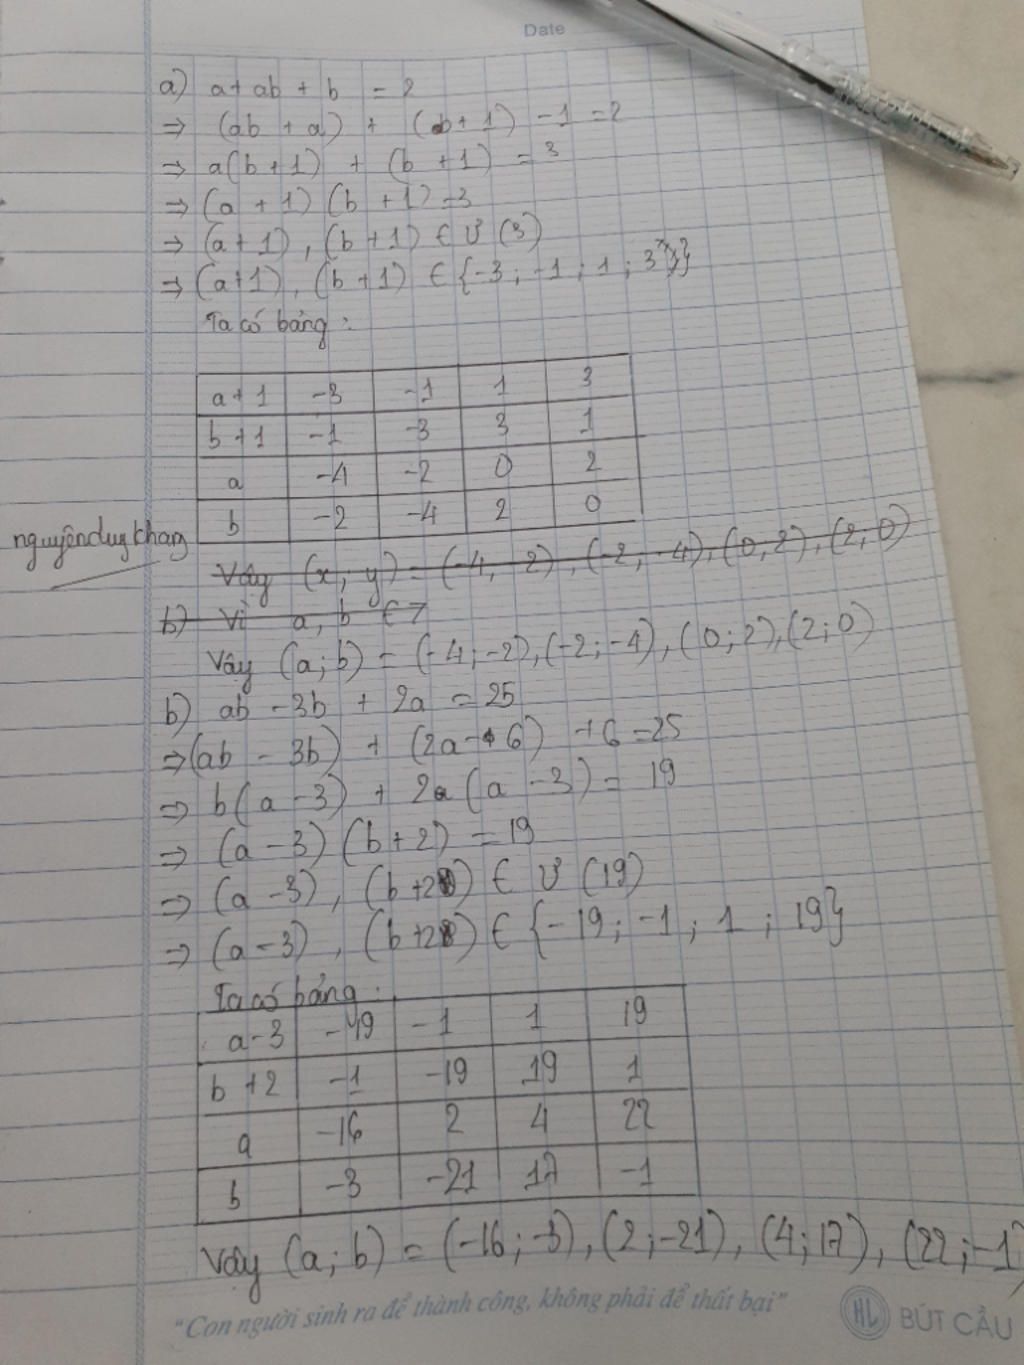 Date
a) a + ab + b = 2
⇒ (ab + a) + (b + 1) - 1 = 2
⇒ a(b + 1) + (b + 1) = 3
⇒ (a + 1) (b + 1) = 3
⇒ (a + 1), (b + 1) ∈ Ư (3)
⇒ (a + 1), (b + 1) ∈ {-3; -1; 1; 3}
Ta có bảng:
a + 1 -3 -1 1 3
b + 1 -1 -3 3 1
a -4 -2 0 2
b -2 -4 2 0
nguyênduykhang
Vậy (x; y) = (-4, -2), (-2, -4), (0, 2), (2, 0)
b) Vì a, b ∈ Z
Vậy (a; b) = (-4; -2), (-2; -4), (0; 2), (2; 0)
b) ab - 3b + 2a = 25
⇒ (ab - 3b) + (2a - 6) + 6 = 25
⇒ b(a - 3) + 2(a - 3) = 19
⇒ (a - 3) (b + 2) = 19
⇒ (a - 3), (b + 2) ∈ Ư (19)
⇒ (a - 3), (b + 2) ∈ {-19; -1; 1; 19}
Ta có bảng:
a - 3 -19 -1 1 19
b + 2 -1 -19 19 1
a -16 2 4 22
b -3 -21 17 -1
Vậy (a; b) = (-16; -3), (2; -21), (4; 17), (22; -1)
"Con người sinh ra để thành công, không phải để thất bại"
HL BÚT CÂU